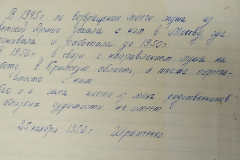 В 1945 г. по возвращении моего мужа из
Армии уехала с ним в Москву, где
и работала до 1950 г.
В 1950 г. в связи с направлением мужа на
работу в Крымскую область, я также
вместе с ним.
Как я сама, никто из моих родственников
судимости не имеет
25 ноября 1950 г.